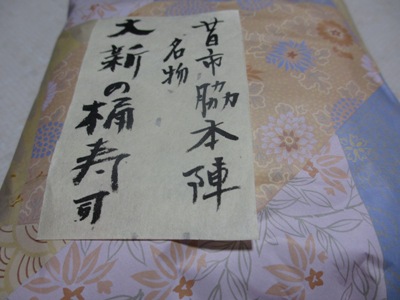 今市脇本陣
名物
大新の桶寿司